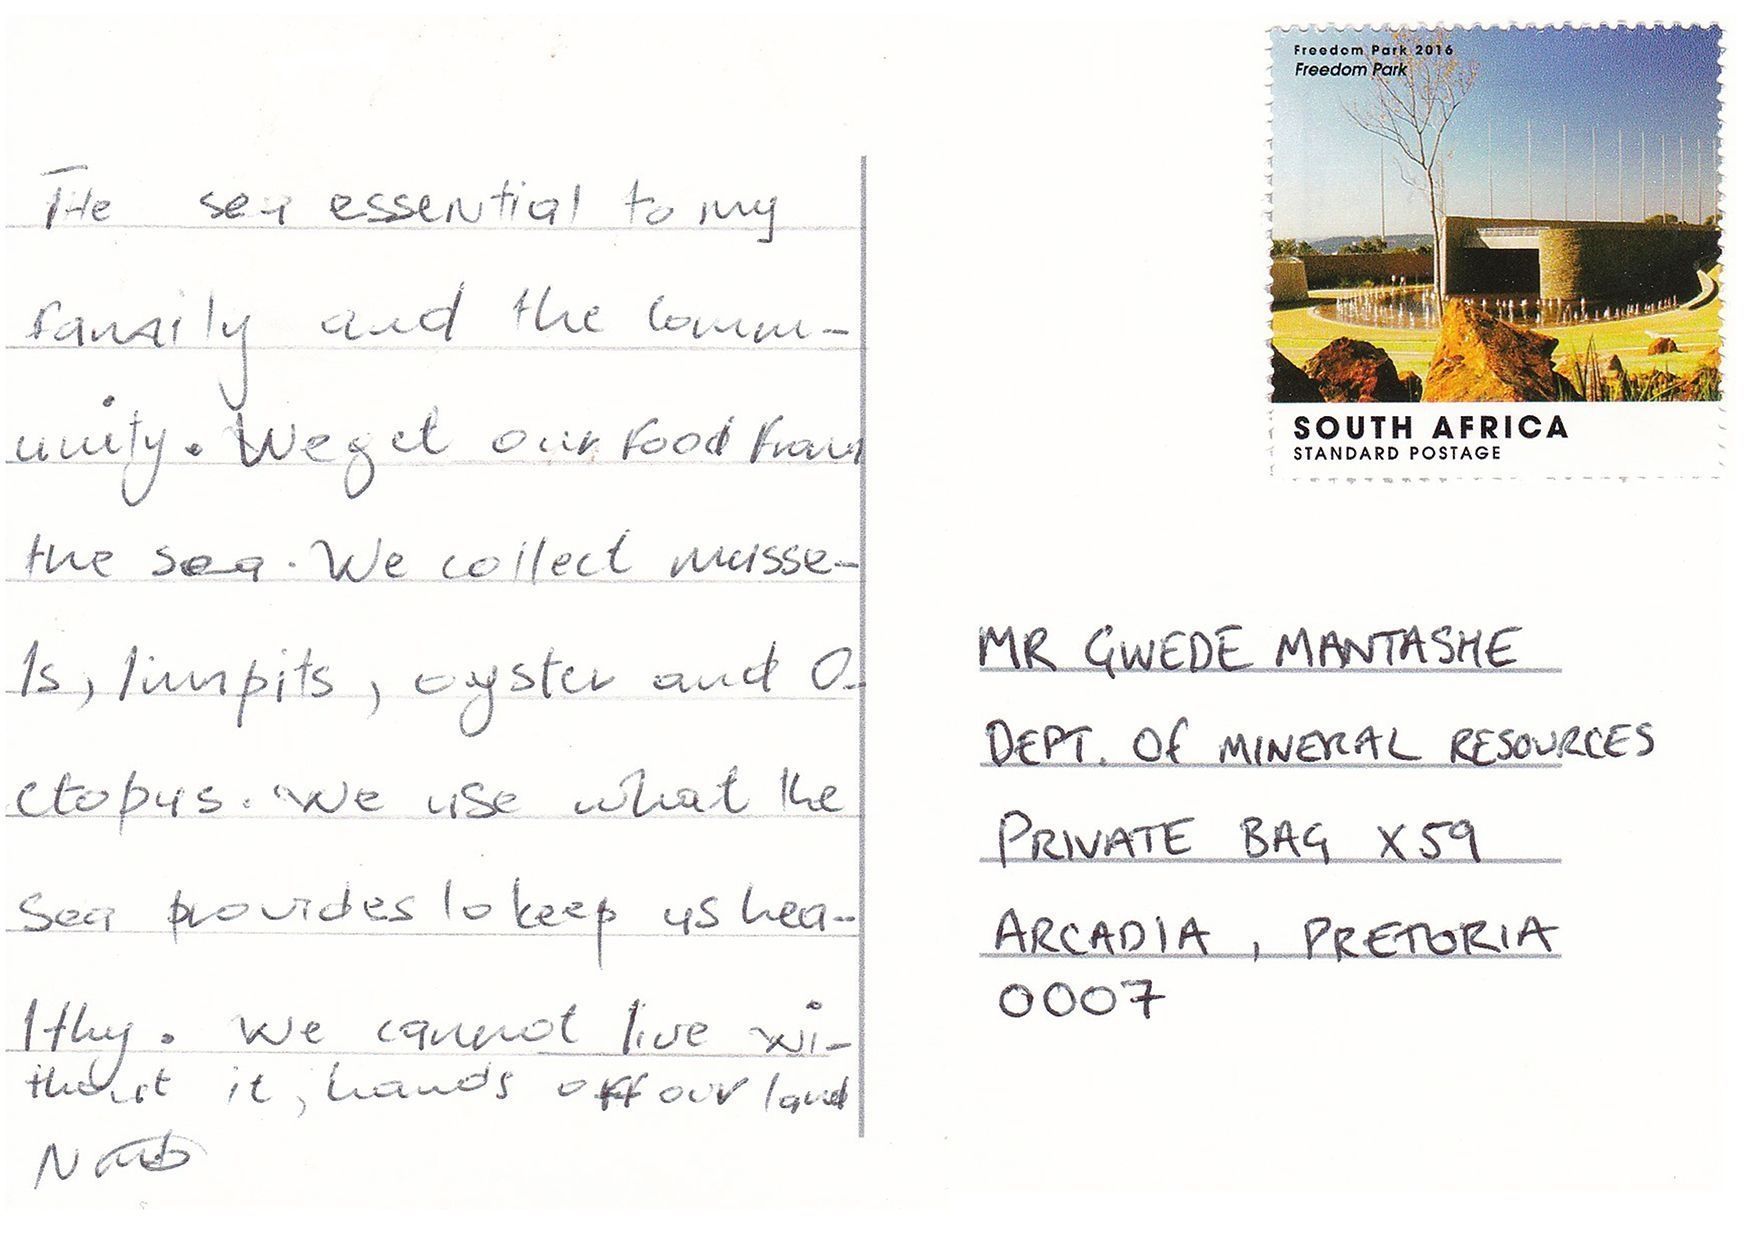 The sea essential to my
family and the comm-
unity. We get our food from
the sea. We collect musse-
ls, limpits, oyster and o-
ctopus. We use what the
sea provides to keep us hea-
lthy. We cannot live wi-
thout it, hands off our land
Freedom Park 2016
Freedom Park
SOUTH AFRICA
STANDARD POSTAGE
MR GWEDE MANTASHE
DEPT. OF MINERAL RESOURCES
PRIVATE BAG X59
ARCADIA, PRETORIA
0007